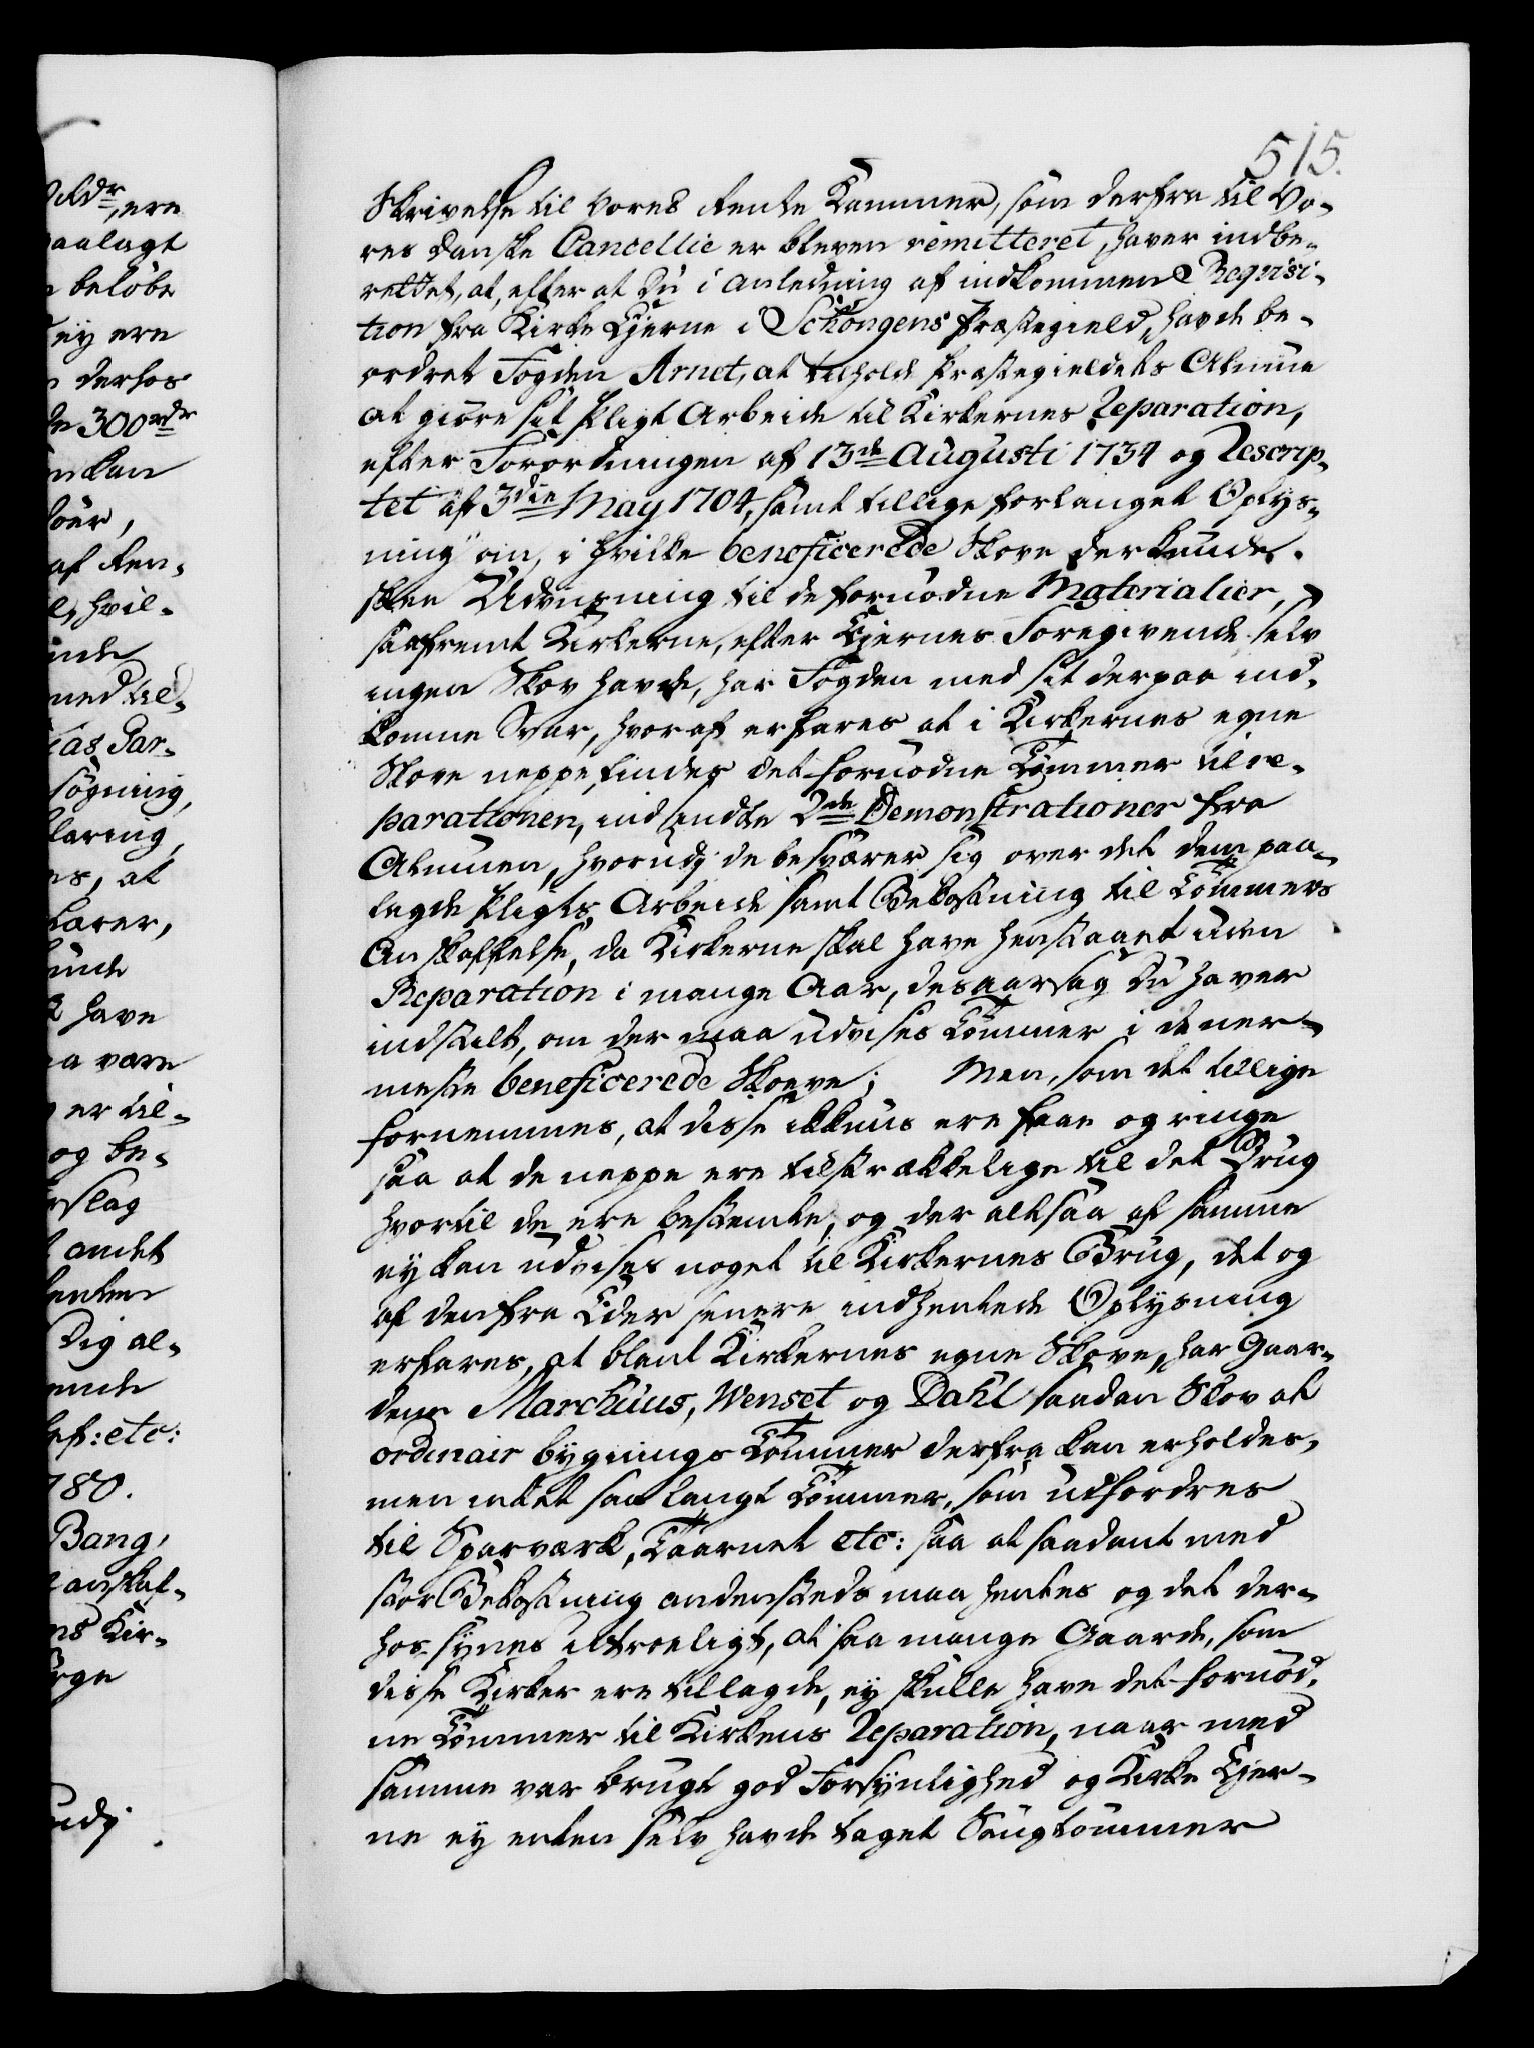 515.
Skrivelse til vores Rente Kammer, som derfra til Vo-
res danske Cancellie er bleven remitteret, haver indbe-
rettet, at, efter at Du i Anledning af indkommen Reqvisi-
tion fra Kirke Ejerne i Schongens Præstegield, havde be-
ordret Fogden Arnet, at tilholde Præstegieldets Almue
at giöre sit Pligt Arbeide til Kirkernes Reparation,
efter Forordningen af 13de Augusti 1734 og Rescrip-
tet af 3die May 1704, samt tillige forlanget Oplys-
ning om, i hvilke beneficerede Skove der kunde
skee Udviisning til de fornödne Materialier,
saafremt Kirkerne, efter Ejernes Foregivende selv
ingen Skov havde, har Fogden med sit derpaa ind-
komne Svar, hvoraf erfares at i Kirkernes egne
Skove neppe findes det fornödne Tömmer til re-
parationen, indsendte 2de Demonstrationer fra
Almuen, hvorudj de besværer sig over det dem paa-
lagde Pligts Arbeide samt Bekostning til Tömmers
Anskaffelse, da Kirkerne skal have henstaaet uden
Reparation i mange Aar, desaarsag Du haver
indstilt, om der maa udvises Tömmer i de ner-
meste beneficerede Skove; Men, som det tillige
fornemmes, at disse ikkuns ere faae og ringe
saa at de neppe ere tilstrækkelige til det Brug
hvortil de ere bestemte, og der altsaa af samme
ey kan udvises noget til Kirkernes Brug, det og
af den fra Eder senere indhentede Oplysning
erfares, at blant Kirkernes egne Skove, har Gaar-
dene Marchuus, Wenset og Dahl saadan Skov at
ordinair bygnings Tömmer derfra kan erholdes,
men intet saa langt Tömmer, som udfordres
til Sparværk, Taarnet etc: saa at saadant med
stor Bekostning andensteds maa hentes og det der-
hos synes utroeligt, at saa mange Gaarde, som
disse Kirker ere tillagde, ey skulle have det fornöd-
ne Tömmer til Kirkens Reparation, naar med
samme var brugt god Forsynlighed og Kirke Ejer-
ne ey enten selv havde taget Saugtömmer
Rdr, ere
paalagt
beløbe
ey ere
derhos
300rdr
kan
af Ren-
hvil-
med til-
Par-
søgning,
klaring,
at
have
være
er til-
og be-
slag
andet
Dig al-
etc:
780.
Bang,
anskaf-
Kir-